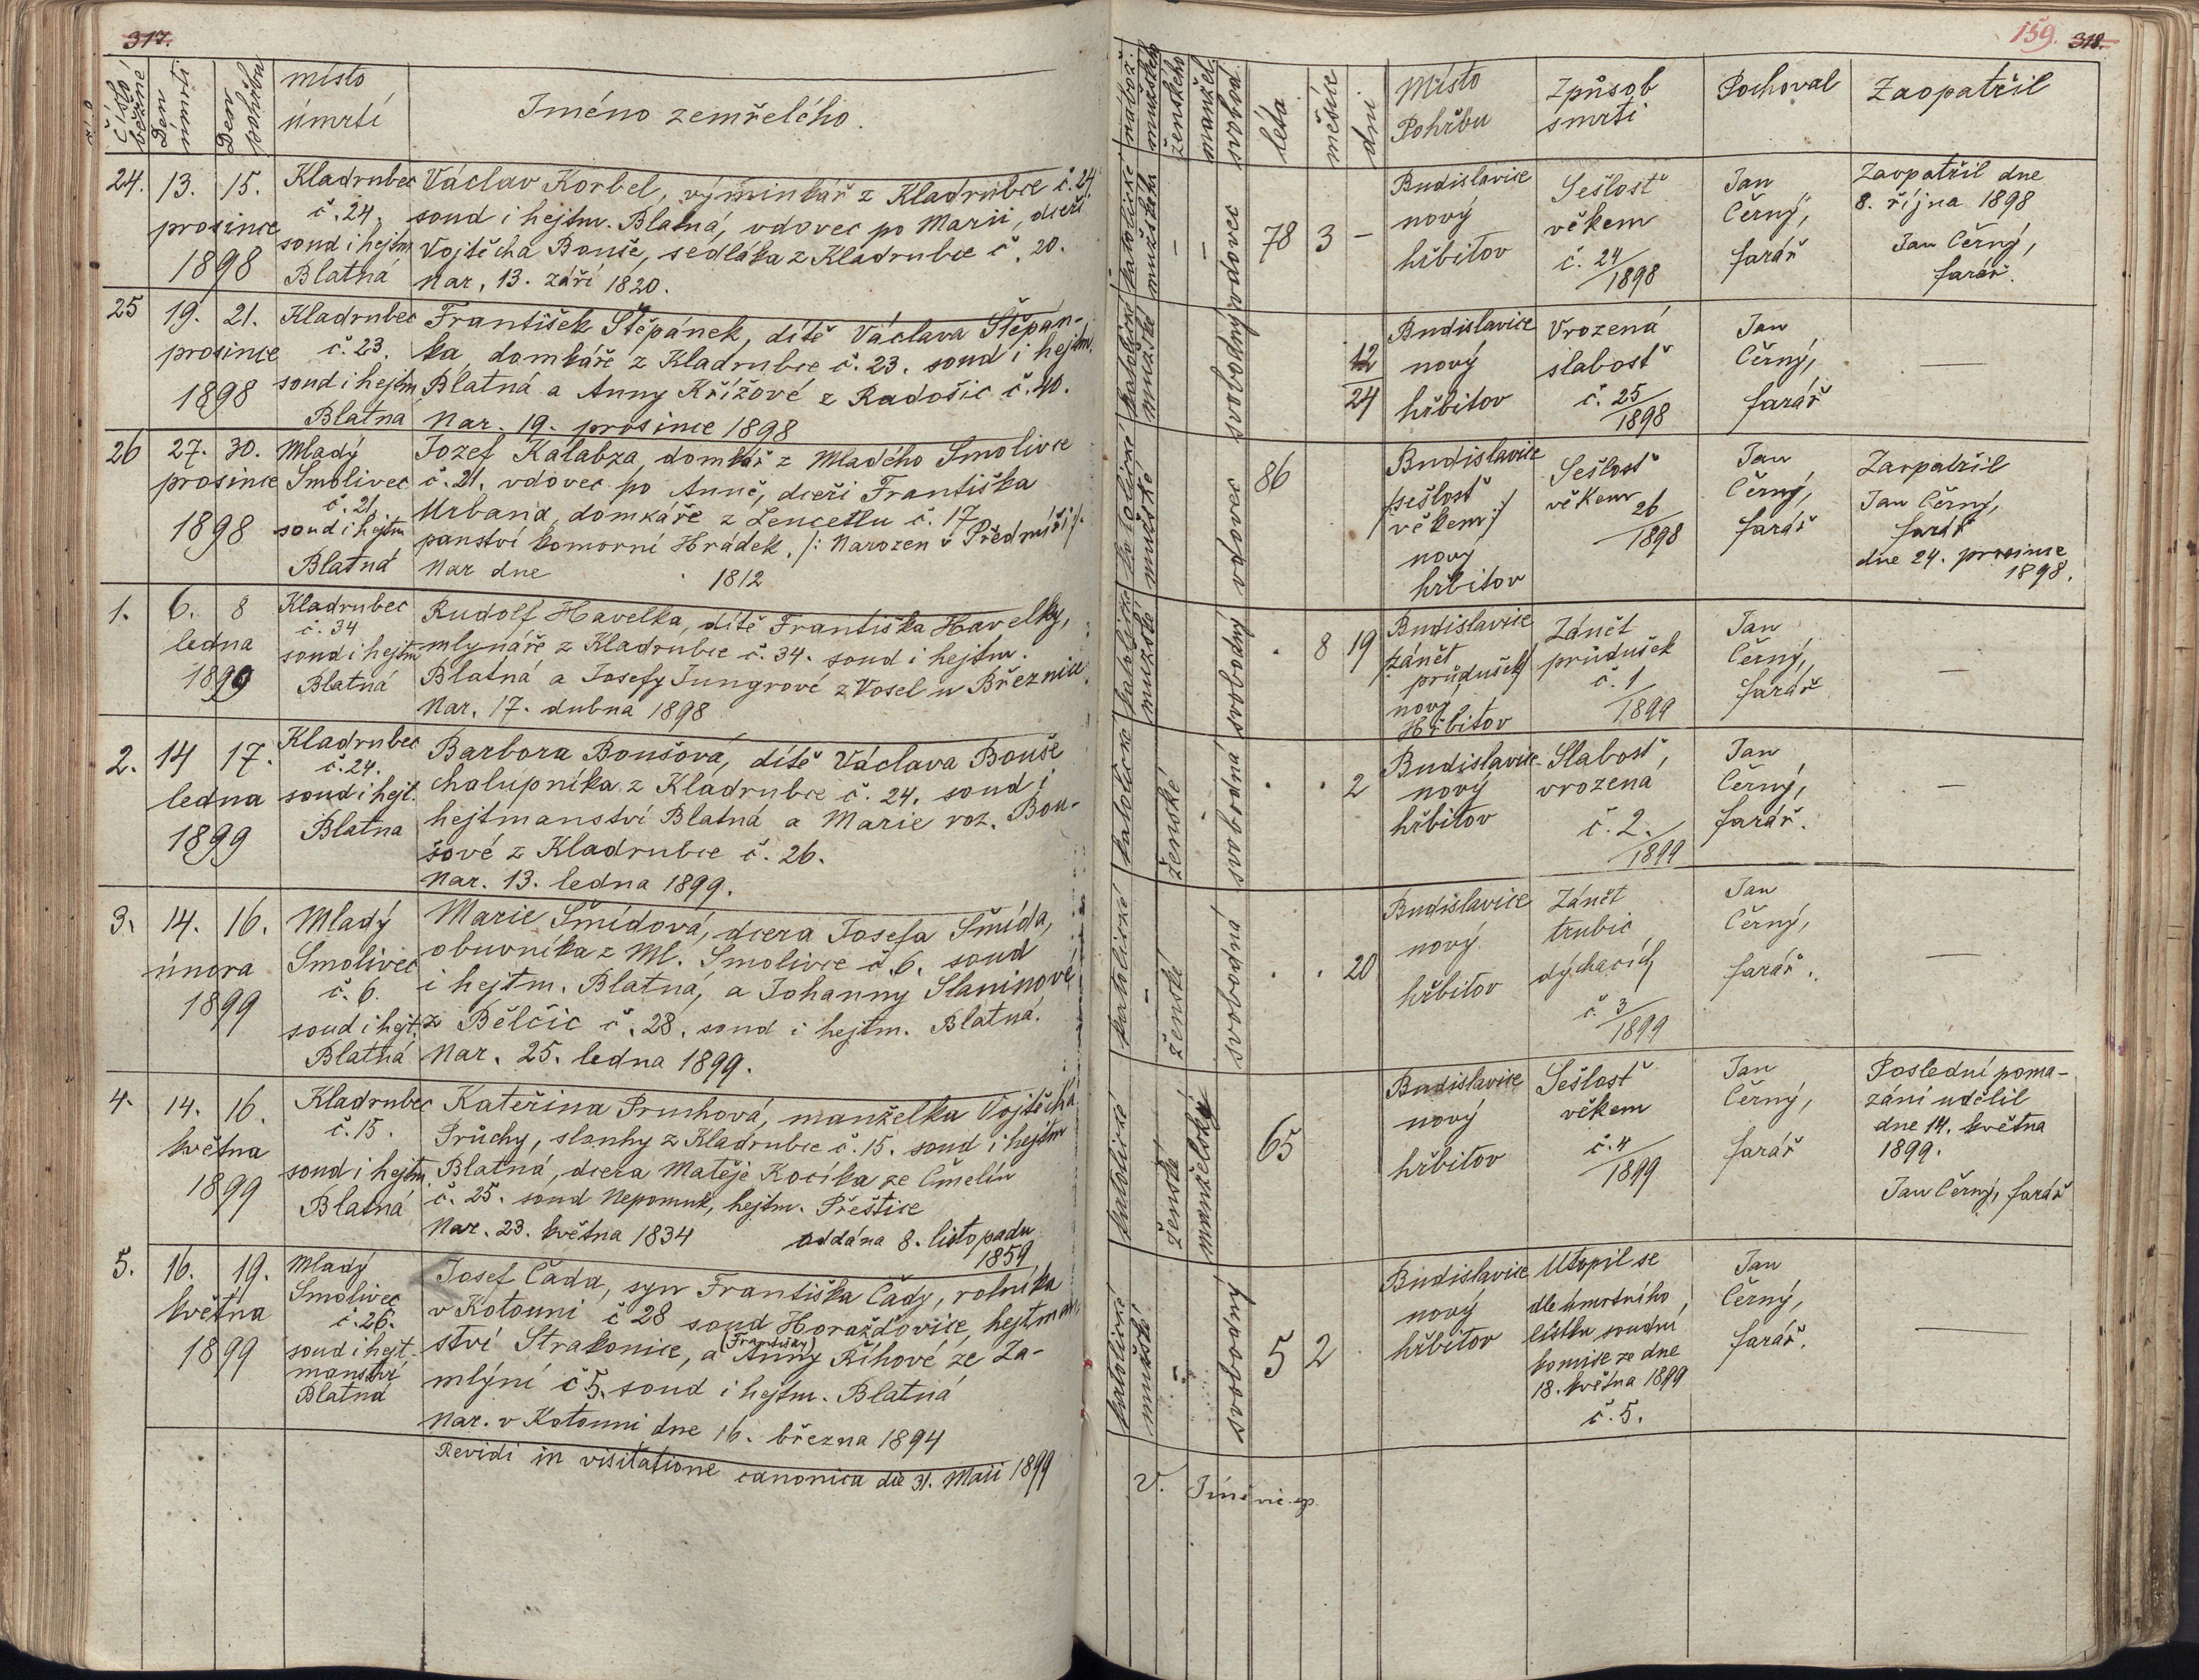 317.
Číslo běžné
Den úmrtí
Den pohřbu
místo
úmrtí
Jméno zemřelého.
24. 13. 15.
prosince
1898
Kladrubec
č. 24.
soud i hejtm.
Blatná
Václav Korbel, výminkář z Kladrubce č. 24
soud i hejtm. Blatná, vdovec po Marii, dceři
Vojtěcha Bouše, sedláka z Kladrubce č. 20.
Nar. 13. září 1820.
25 19. 21.
prosince
1898
Kladrubec
č. 23.
soud i hejtm
Blatna
František Štěpánek, dítě Václava Štěpán-
ka, domkáře z Kladrubce č. 23. soud i hejtm.
Blatná a Anny Křížové z Radošic č. 40.
Nar. 19. prosince 1898
26 27. 30.
prosince
1898
Mladý
Smolivec
č. 21.
soud i hejtm
Blatná
Jozef Kalabza, domkář z Mladého Smolivce
č. 21. vdovec po Anně, dceři Františka
Urbana, domkáře z Zencetlu č. 17
panství komorní Hrádek. /: Narozen v Předmíři :/.
Nar dne 1812
1. 6. 8
ledna
1899
Kladrubec
č. 34
soud i hejtm
Blatná
Rudolf Havelka, dítě Františka Havelky,
mlynáře z Kladrubce č. 34. soud i hejtm.
Blatná a Josefy Jungrové z Vosel u Březnice.
Nar. 17. dubna 1898
2. 14 17.
ledna
1899
Kladrubec
č. 24.
soud i hejt.
Blatna
Barbora Boušová, dítě Václava Bouše
chalupníka z Kladrubce č. 24. soud i
hejtmanství Blatná a Marie roz. Bou-
šové z Kladrubce č. 26.
Nar. 13. ledna 1899.
3. 14. 16.
února
1899
Mladý
Smolivec
č. 6.
soud i hejt.
Blatná
Marie Šmídová, dcera Josefa Šmída,
obuvníka z Ml. Smolivce č. 6. soud
i hejtm. Blatná, a Johanny Slaninové
z Bělčic č. 28. soud i hejtm. Blatná.
Nar. 25. ledna 1899.
4. 14. 16.
května
1899
Kladrubec
č. 15.
soud i hejtm.
Blatná
Kateřina Pruchová, manželka Vojtěcha
Průchy, slouhy z Kladrubce č. 15. soud i hejtm
Blatná, dcera Matěje Kocíka ze Čmelín
č. 25. soud Nepomuk, hejtm. Přeštice
Nar. 23. května 1834 oddána 8. listopadu
1859
5. 16. 19.
května
1899
Mladý
Smolivec
č. 26.
soud i hejt.
manství
Blatná
Josef Čada, syn Františka Čady, rolníka
v Kotouni č 28 soud Horažďovice, hejtman
ství Strakonice, a (Františky) Anny Říhové ze Za-
mlýní č 5. soud i hejtm. Blatná
Nar. v Kotouni dne 16. března 1894
Revidi in visitatione canonica die 31. Maii 1899
159. 318.
nábož.
mužského
ženského
manžel.
svobod.
léta
měsíce
dní
Místo
Pohřbu
Způsob
smrti
Pochoval
Zaopatřil
katolické
mužské
- -
vdovec
78 3 -
Budislavice
nový
hřbitov
Sešlosť
věkem
č. 24/1898
Jan
Černý,
farář
Zaopatřil dne
8. října 1898
Jan Černý,
farář.
katolické
mužské
svobodný
12/24
Budislavice
nový
hřbitov
Vrozená
slabosť
č. 25/1898
Jan
Černý,
farář
—
katolické
mužské
vdovec
86
Budislavice
/sešlosť
věkem:/
nový
hřbitov
Sešlosť
věkem
26/1898
Jan
Černý,
farář
Zaopatřil
Jan Černý,
farář
dne 24. prosince
1898.
katolické
mužské
svobodný
. 8 19
Budislavice
/zánět
průdušek/
nový
Hřbitov
Zánět
průdušek
č. 1/1899
Jan
Černý,
farář
—
katolické
ženské
svobodná
. . 2
Budislavice
nový
hřbitov
Slabosť,
vrozena
č. 2./1899
Jan
Černý,
farář.
—
katolické
- ženské
svobodná
. . 20
Budislavice
nový
hřbitov
Zánět
trubic
dýchacích
č. 3/1899
Jan
Černý,
farář.
—
katolické
ženské
manželský
65
Budislavice
nový
hřbitov
Sešlosť
věkem
č. 4/1899
Jan
Černý,
farář
Poslední poma-
zání udělil
dne 14. května
1899.
Jan Černý, farář
katolické
mužské
-
svobodný
5 2
Budislavice
nový
hřbitov
Utopil se
dle úmrtního
lístku soudní
komise ze dne
18. května 1899
č. 5.
Jan
Černý,
farář.
—